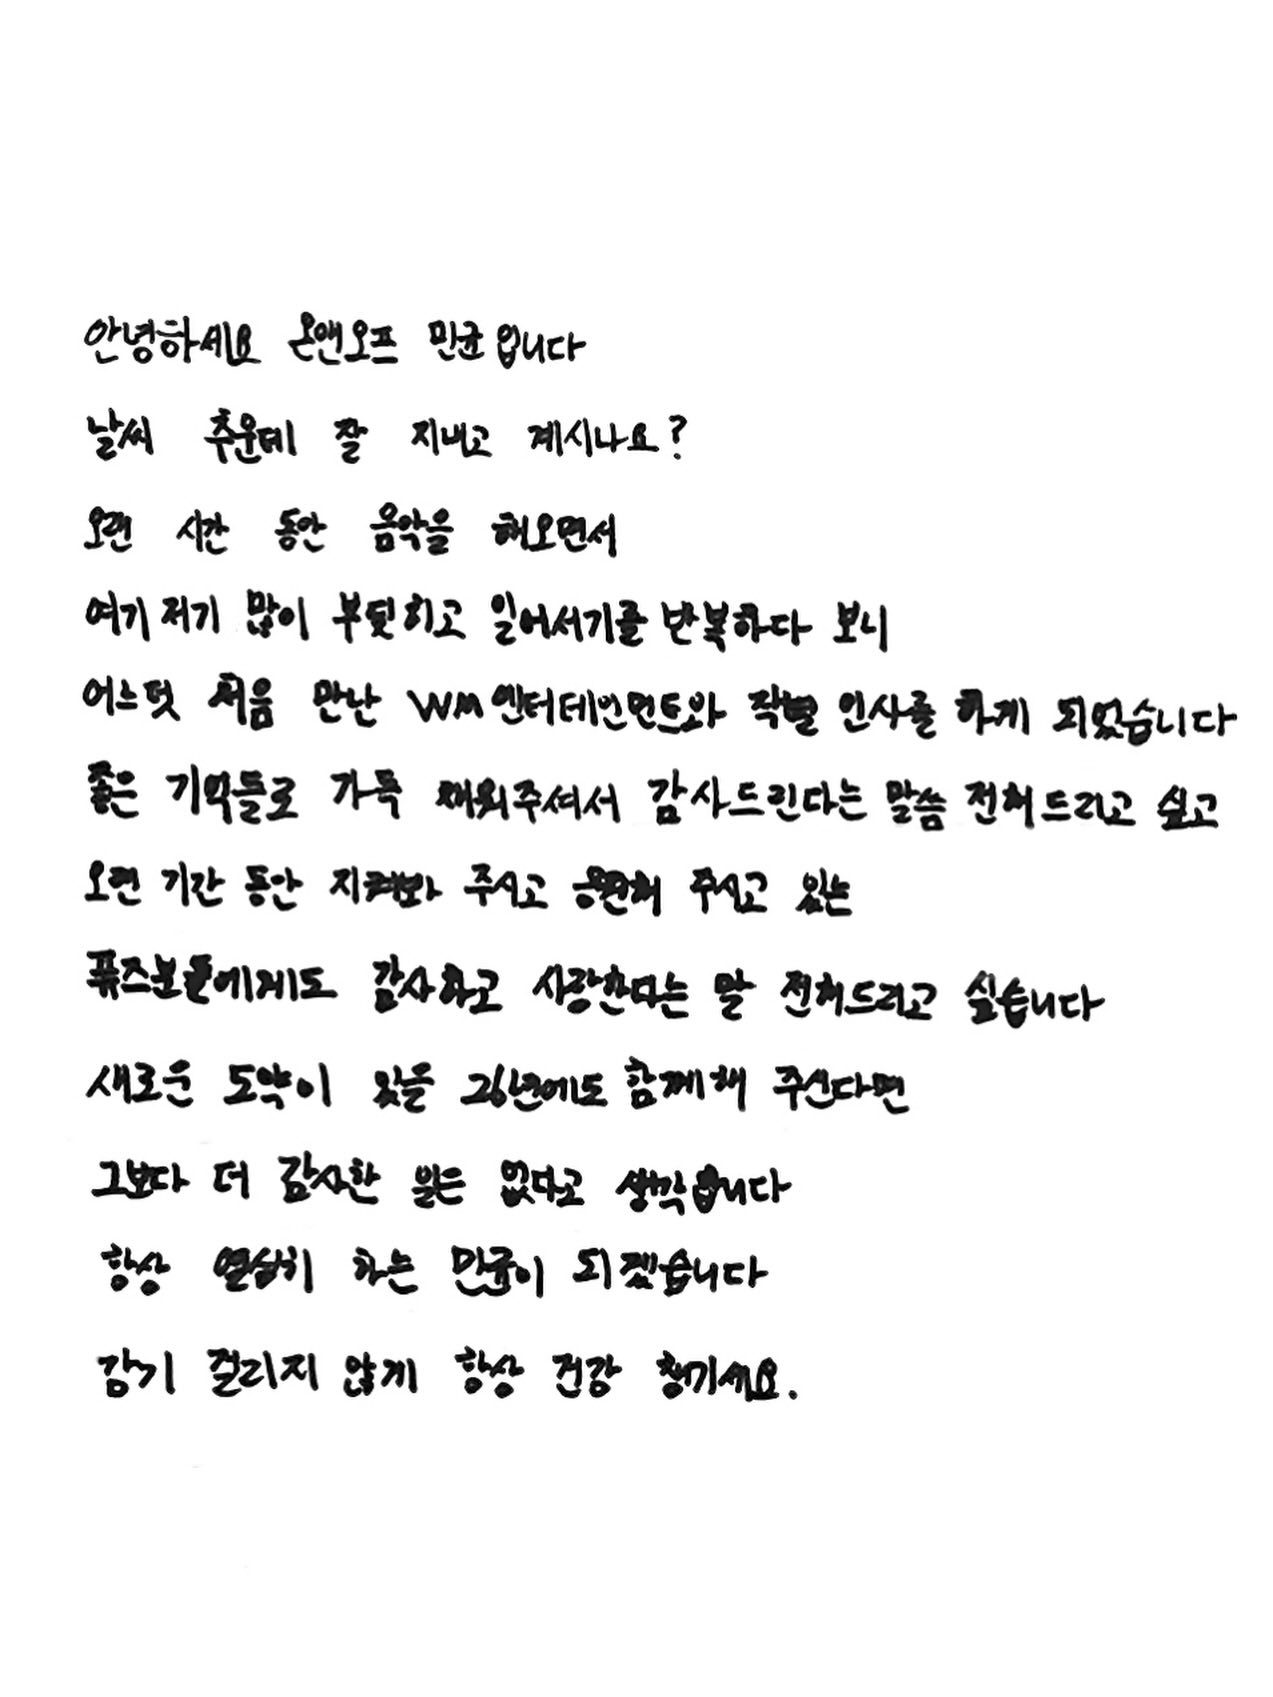 안녕하세요 온앤오프 민균입니다
날씨 추운데 잘 지내고 계시나요?
오랜 시간 동안 음악을 해오면서
여기저기 많이 부딪히고 일어서기를 반복하다 보니
어느덧 처음 만난 WM엔터테인먼트와 작별 인사를 하게 되었습니다
좋은 기억들로 가득 채워주셔서 감사드린다는 말씀 전해드리고 싶고
오랜 기간 동안 지켜봐 주시고 응원해 주시고 있는
퓨즈분들에게도 감사하고 사랑한다는 말 전해드리고 싶습니다
새로운 도약이 있을 26년에도 함께해 주신다면
그보다 더 감사한 일은 없다고 생각합니다
항상 열심히 하는 민균이 되겠습니다
감기 걸리지 않게 항상 건강 챙기세요.